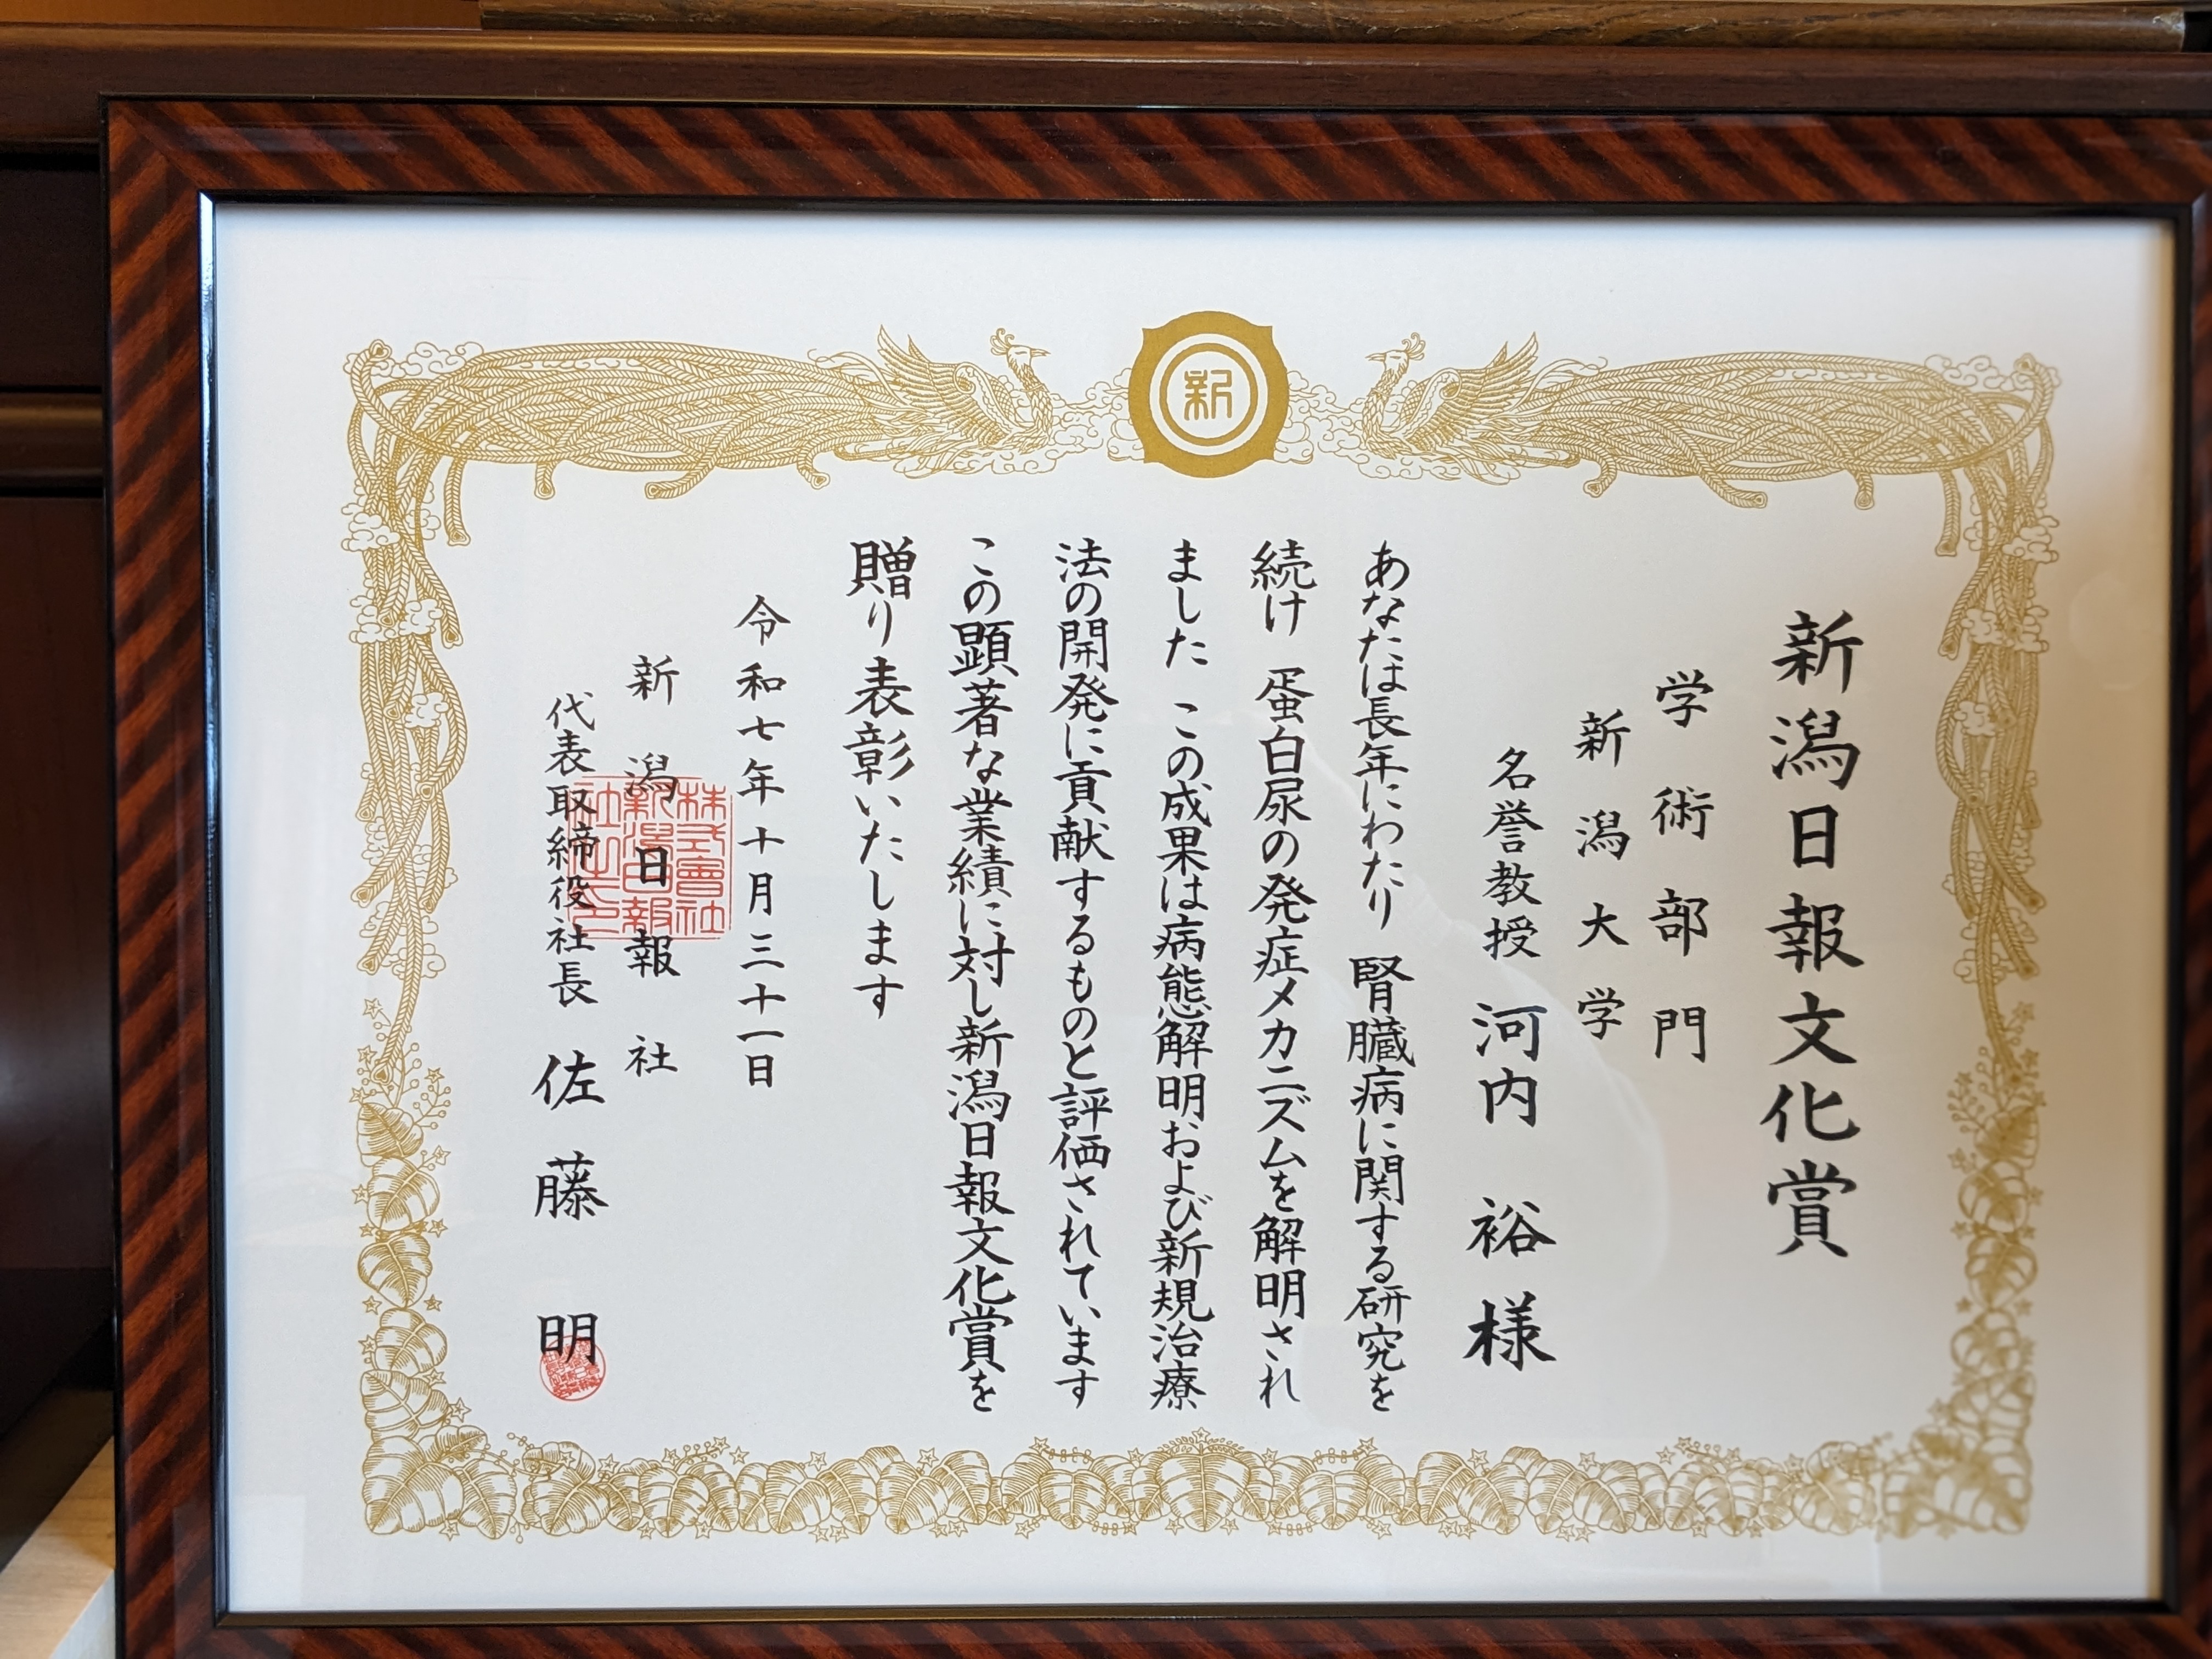 新
新潟日報文化賞
学術部門
新潟大学
名誉教授 河内 裕 様
あなたは長年にわたり 腎臓病に関する研究を
続け 蛋白尿の発症メカニズムを解明され
ました この成果は病態解明および新規治療
法の開発に貢献するものと評価されています
この顕著な業績に対し新潟日報文化賞を
贈り表彰いたします
令和七年十月三十一日
新潟日報社
代表取締役社長 佐藤 明
株式會社
新潟日報
社之印